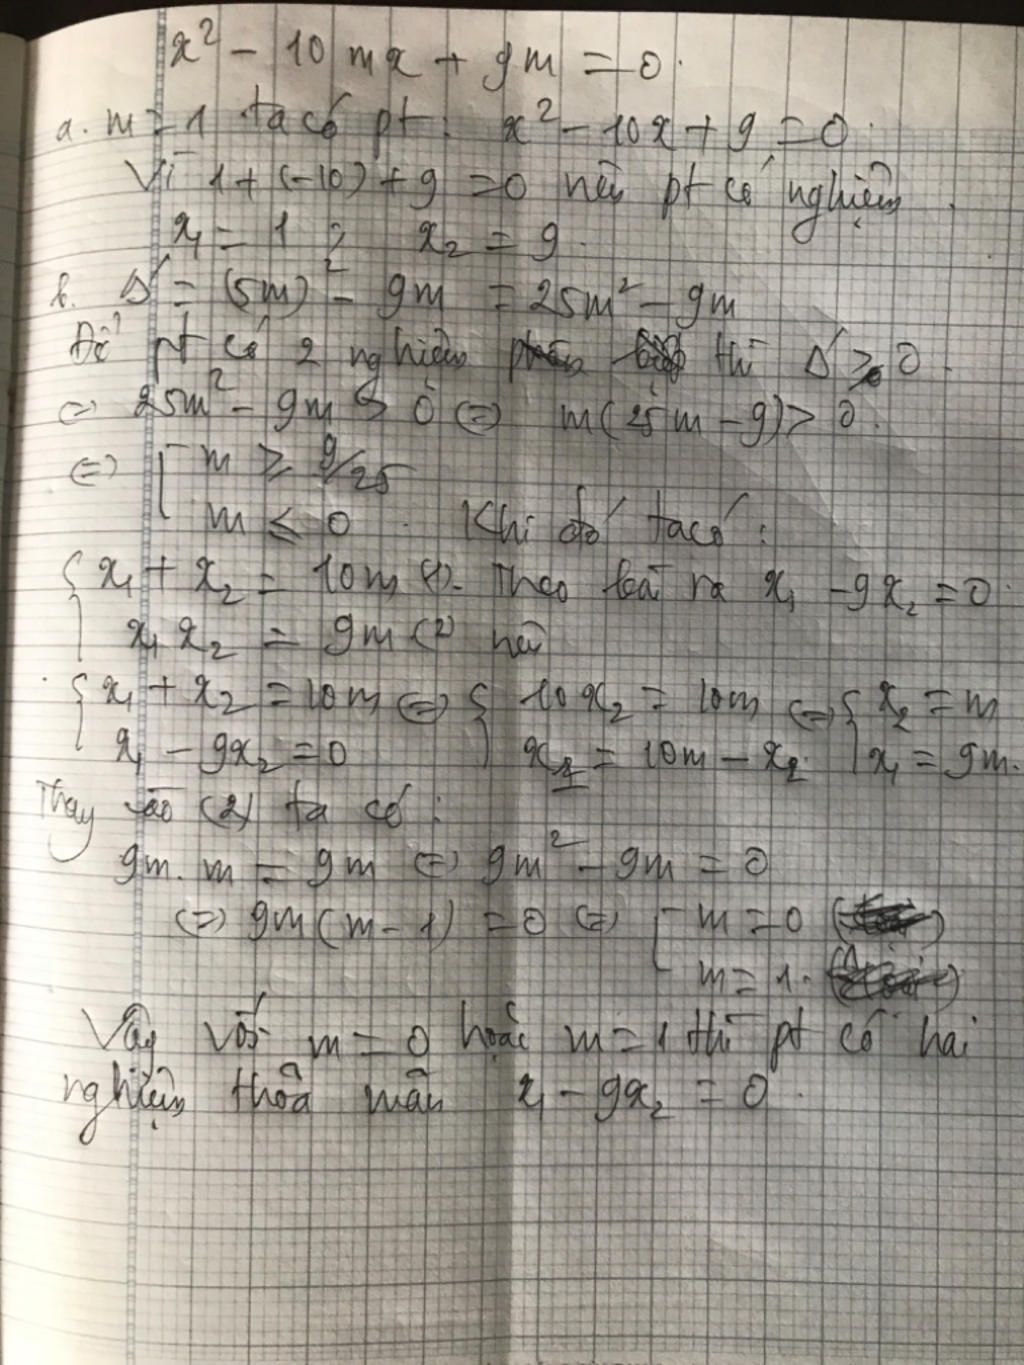 x² - 10mx + 9m = 0.
a. m = 1 ta có pt: x² - 10x + 9 = 0.
Vì 1 + (-10) + 9 = 0 nên pt có nghiệm
x₁ = 1 ; x₂ = 9.
b. Δ' = (5m)² - 9m = 25m² - 9m
Để pt có 2 nghiệm thì Δ' ≥ 0.
⇔ 25m² - 9m ≥ 0 ⇔ m(25m - 9) > 0.
⇔ [ m ≥ 9/25
m ≤ 0. Khi đó ta có:
{ x₁ + x₂ = 10m (1). Theo bài ra x₁ - 9x₂ = 0.
x₁x₂ = 9m (2) nên
{ x₁ + x₂ = 10m ⇔ { 10x₂ = 10m ⇔ { x₂ = m
x₁ - 9x₂ = 0 x₁ = 10m - x₂ x₁ = 9m.
Thay vào (2) ta có:
9m.m = 9m ⇔ 9m² - 9m = 0
⇔ 9m(m - 1) = 0 ⇔ [ m = 0
m = 1.
Vậy với m = 0 hoặc m = 1 thì pt có hai
nghiệm thỏa mãn x₁ - 9x₂ = 0.